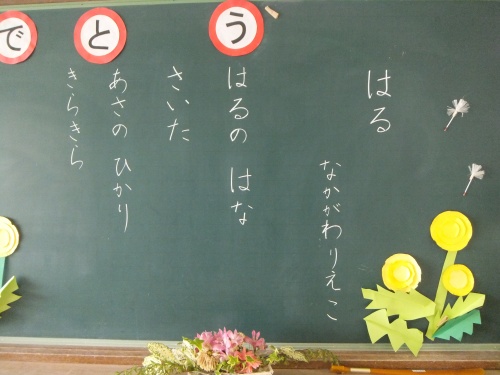 でとう
はる
なかがわりえこ
はるの はな
さいた
あさの ひかり
きらきら